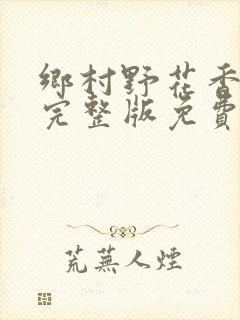 鄉村野花香
完整版免費
荒蕪人煙